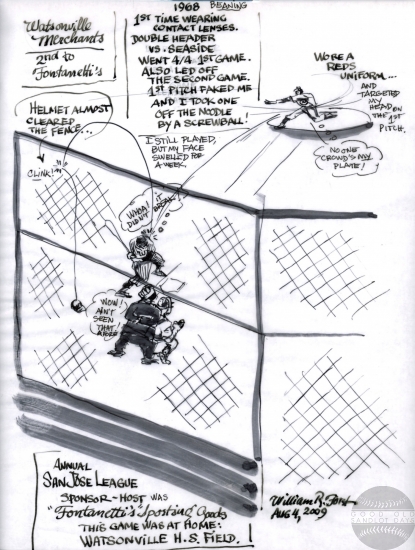 1968 BEANING
Watsonville
Merchants
2nd to
Fontanetti's
1ST TIME WEARING
CONTACT LENSES.
DOUBLE HEADER
VS. SEASIDE
WENT 4/4 1ST GAME.
ALSO LED OFF
THE SECOND GAME.
1ST PITCH FAKED ME
AND I TOOK ONE
OFF THE NOODLE
BY A SCREWBALL!
I STILL PLAYED,
BUT MY FACE
SWELLED FOR
A WEEK.
WORE A
REDS
UNIFORM...
AND
TARGETED
MY
HEAD
ON THE
1ST
PITCH.
NO ONE
CROWD'S MY
PLATE!
HELMET ALMOST
CLEARED
THE FENCE...
CLINK!
WHOA! IT
DIDN'T BREAK.
WOW!
AIN'T
SEEN
THAT
BEFORE
ANNUAL
SAN JOSE LEAGUE
SPONSOR-HOST WAS
"Fontanetti's" Sporting Goods
THIS GAME WAS AT HOME:
WATSONVILLE H.S. FIELD.
William R.
AUG 4, 2009